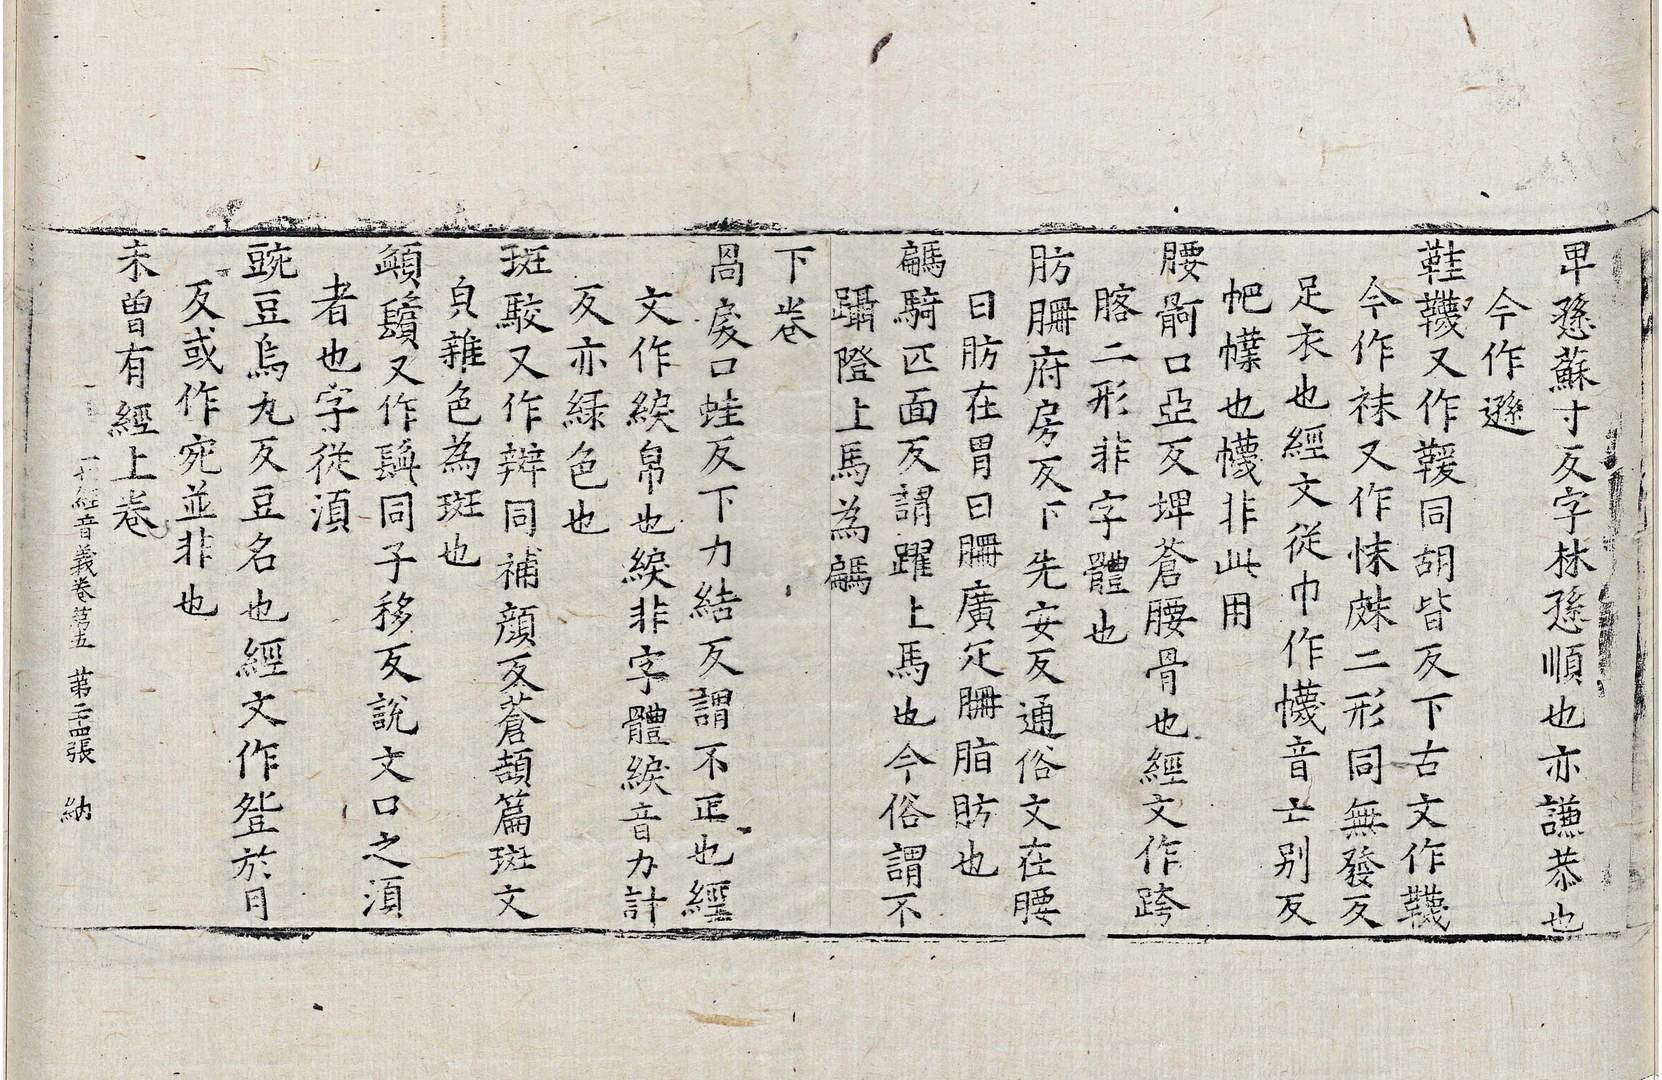 卑愻蘇寸反字林愻順也亦謙恭也
今作遜
鞋韈又作鞵同胡皆反下古文作韈
今作袜又作㡒𢇲二形同無發反
足衣也經文從巾作幭音亡別反
帊幞也幭非此用
腰骻口亞反埤蒼腰骨也經文作跨
𦝣二形非字體也
肪𦙱府房反下先安反通俗文在腰
曰肪在胃曰𦙱廣疋𦙱脂肪也
騗騎匹面反謂躍上馬也今俗謂不
躡隥上馬為騗
下卷
咼戾口蛙反下力結反謂不正也經
文作綟帛也綟非字體綟音力計
反亦綠色也
斑駮又作辨同補顏反蒼頡篇斑文
㒵雜色為斑也
䫇鬚又作䰅同子移反說文口之須
者也字從須
豌豆烏丸反豆名也經文作登於月
反或作宛並非也
未曾有經上卷
一切經音義卷第五 第二十四張 納